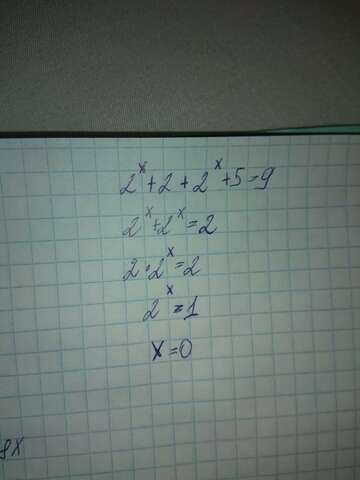 2ˣ+2+2ˣ+5=9
2ˣ+2ˣ=2
2·2ˣ=2
2ˣ=1
x=0
8x